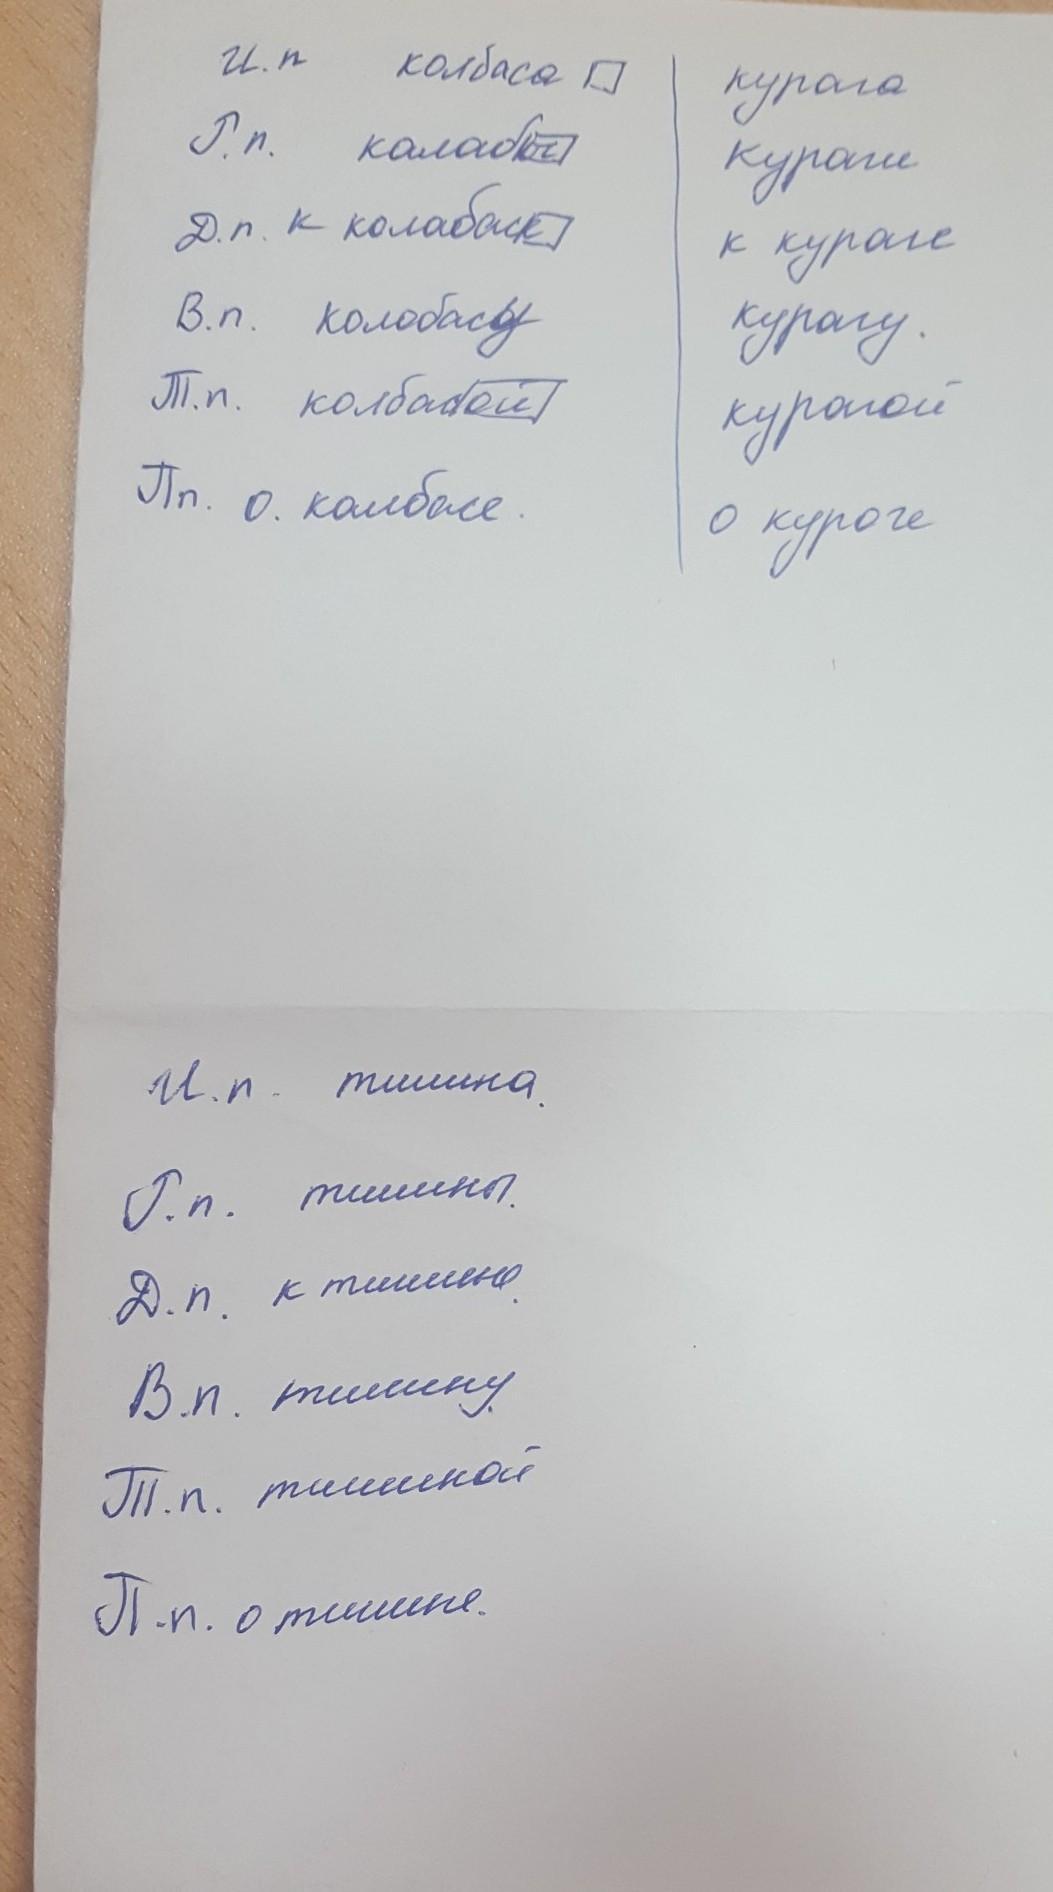 И.п колбаса
Г.п.
Д.п. к колабасе
В.п. колобасу
Т.п. колбасой
Пп. о. колбасе.
курага
кураги
к кураге
курагу.
курагой
о кураге
И.п. тишина.
Г.п. тишины.
Д.п. к тишине.
В.п. тишину.
Т.п. тишиной
П.п. о тишине.